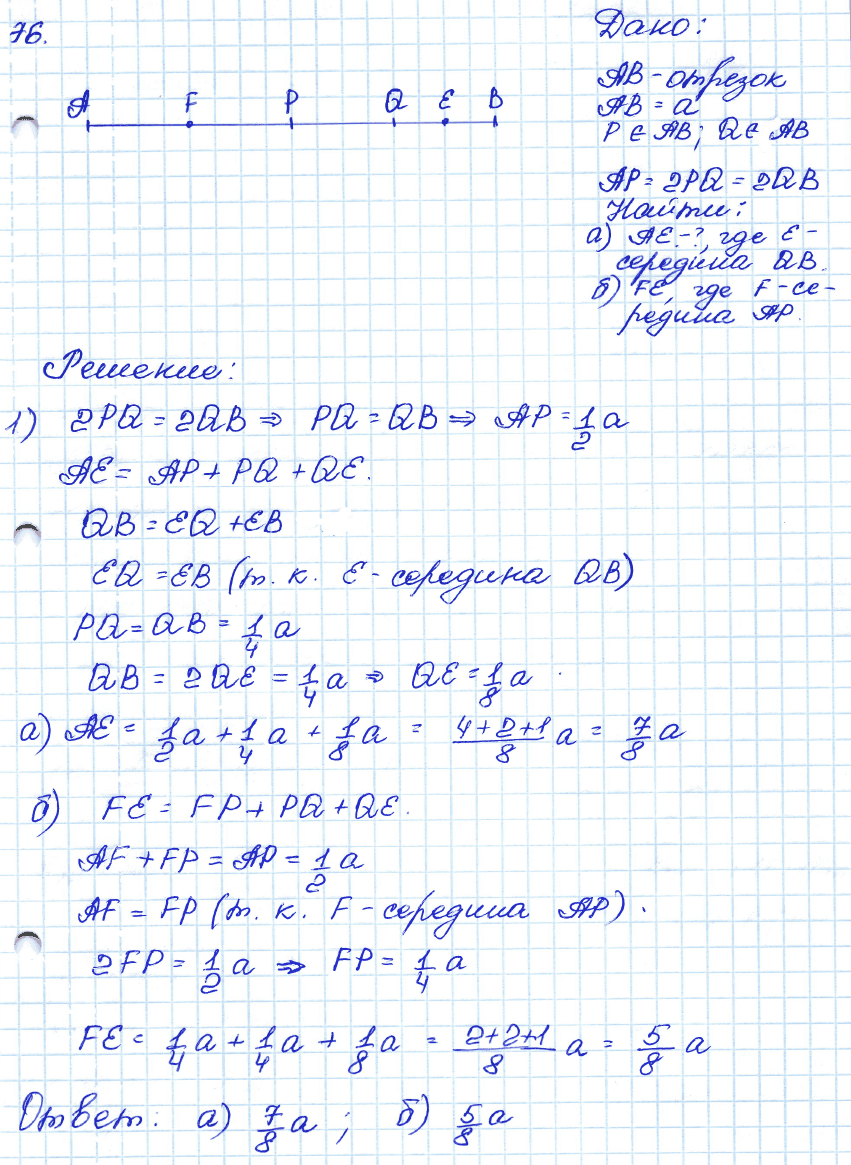 76.
Дано:
A F P Q E B
AB - отрезок
AB = a
P ∈ AB; Q ∈ AB
AP = 2PQ = 2QB
Найти:
а) AE - ?, где E -
середина QB.
б) FE, где F - се-
редина AP.
Решение:
1) 2PQ = 2QB ⇒ PQ = QB ⇒ AP = 1/2 a
AE = AP + PQ + QE.
QB = EQ + EB
EQ = EB (т. к. E - середина QB)
PQ = QB = 1/4 a
QB = 2QE = 1/4 a ⇒ QE = 1/8 a
а) AE = 1/2 a + 1/4 a + 1/8 a = (4+2+1)/8 a = 7/8 a
б) FE = FP + PQ + QE.
AF + FP = AP = 1/2 a
AF = FP (т. к. F - середина AP).
2FP = 1/2 a ⇒ FP = 1/4 a
FE = 1/4 a + 1/4 a + 1/8 a = (2+2+1)/8 a = 5/8 a
Ответ: а) 7/8 a; б) 5/8 a